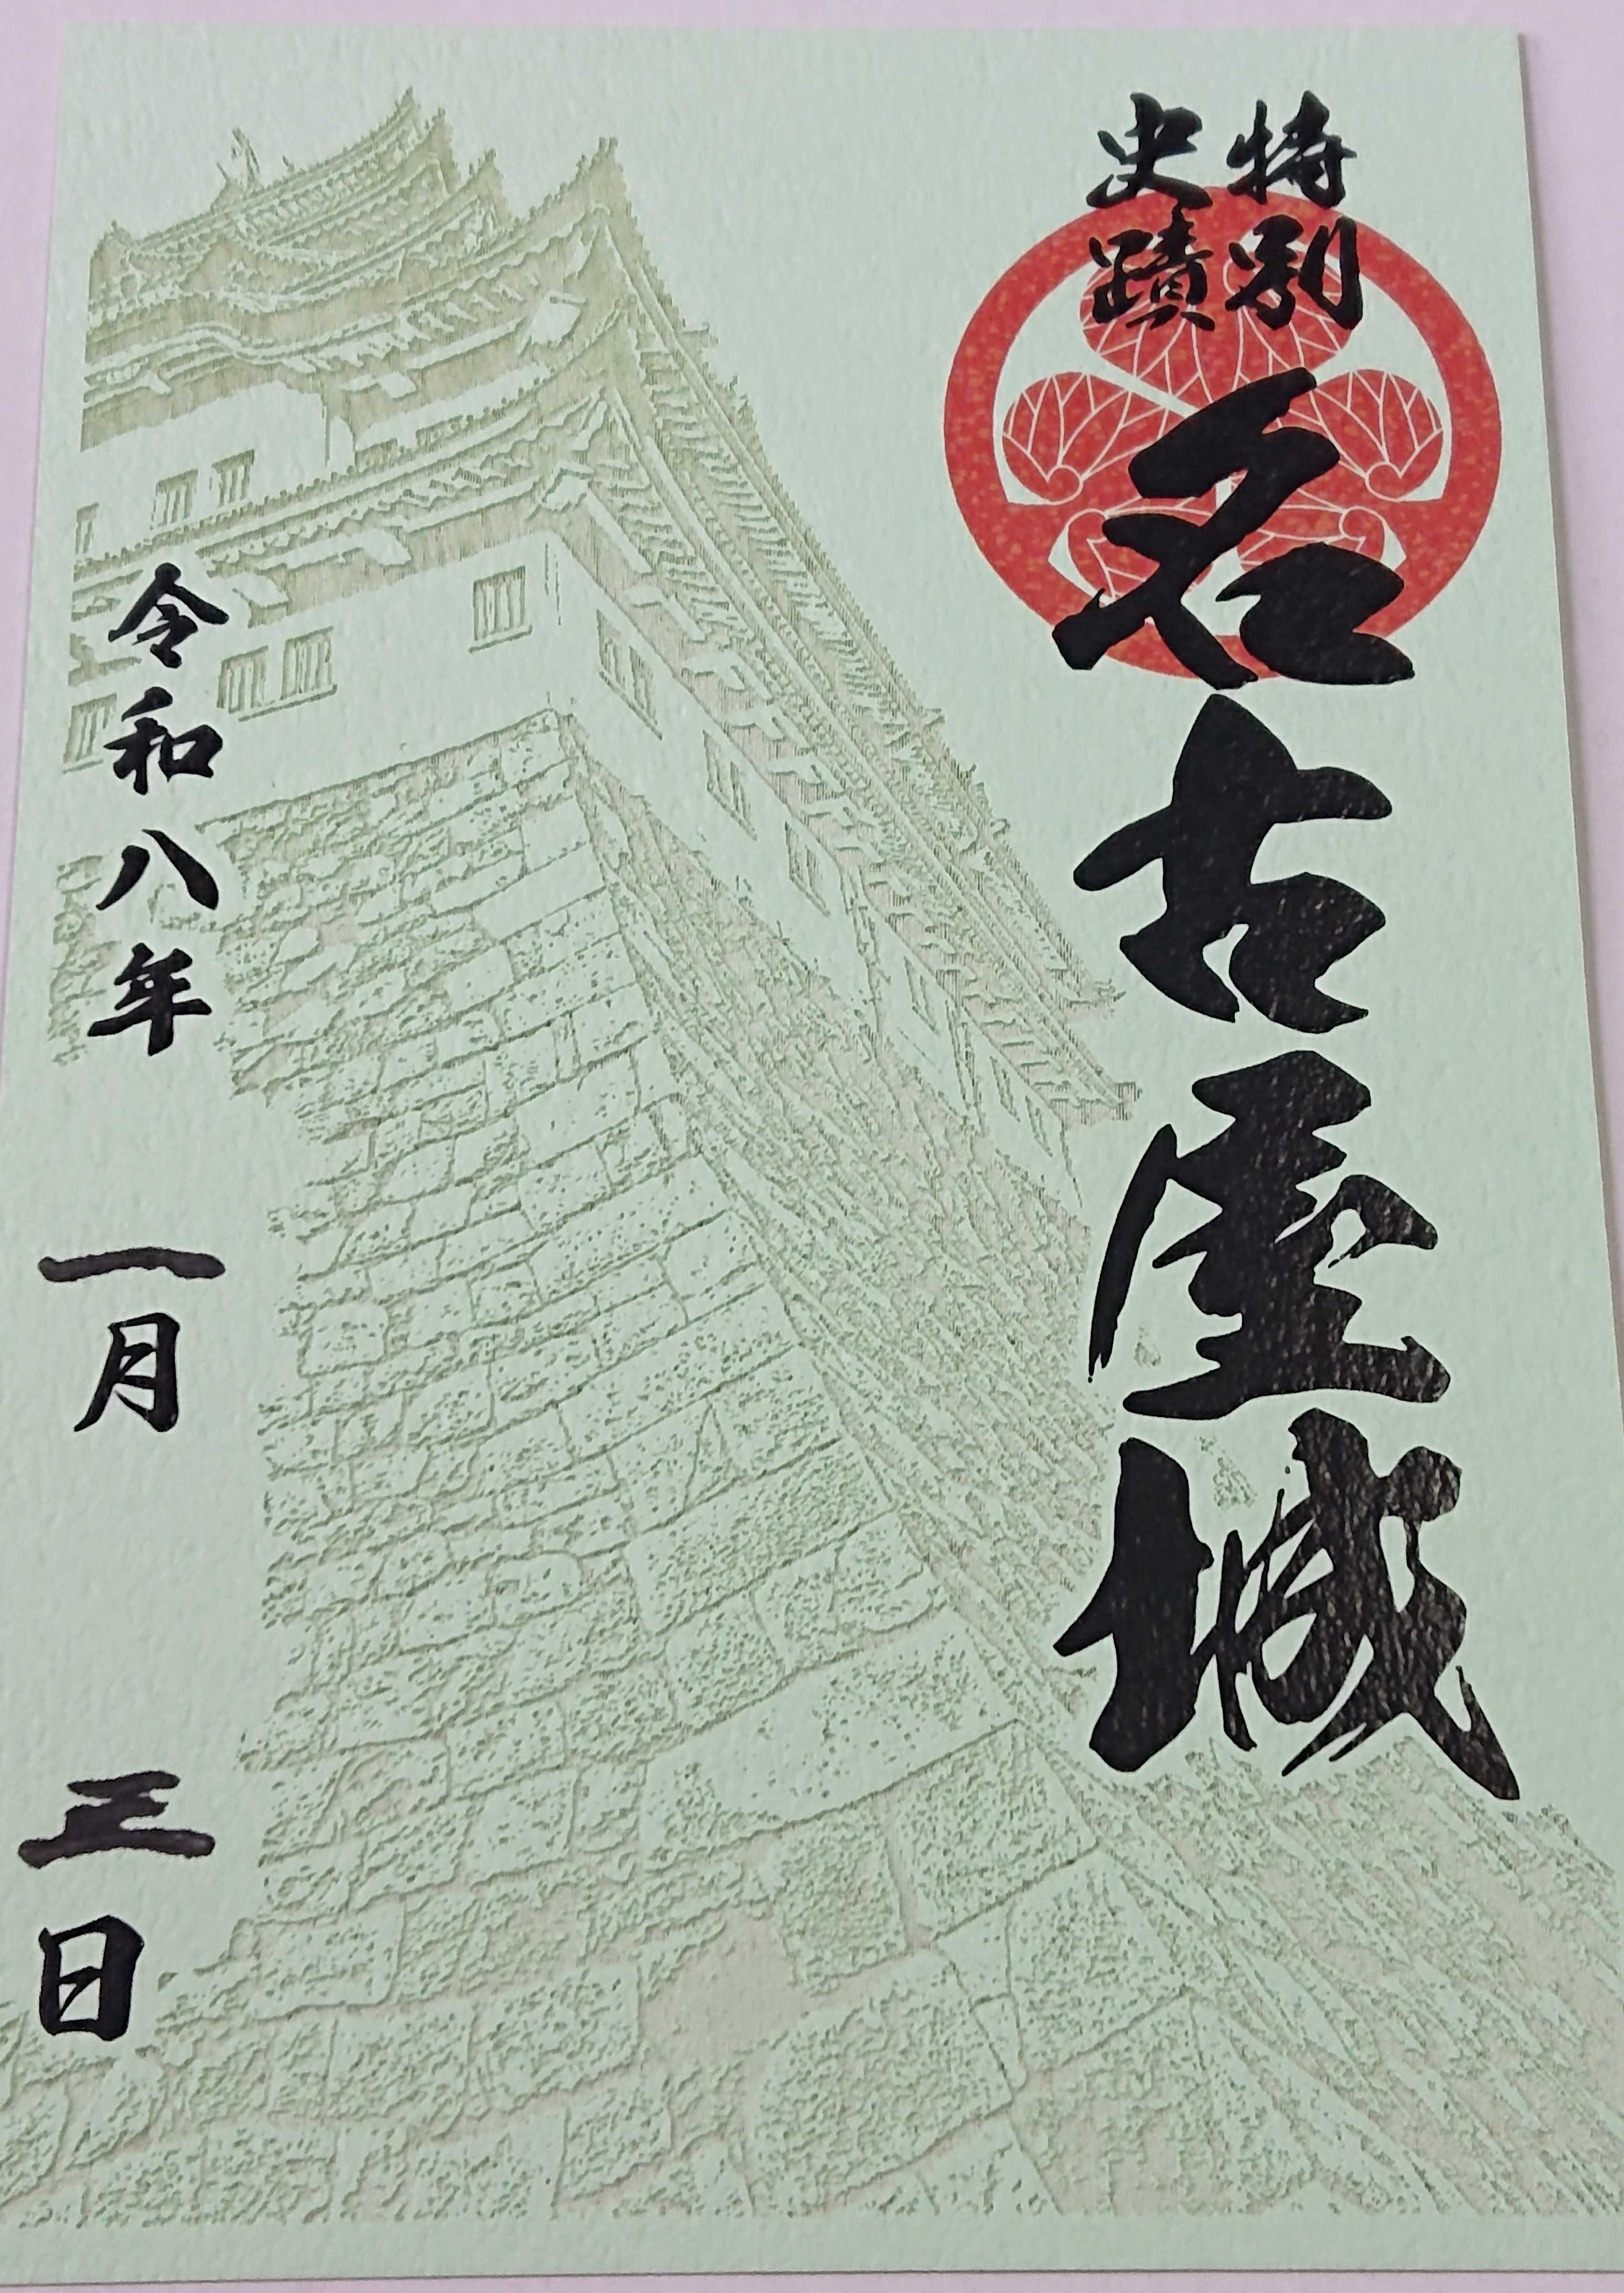 特別
史蹟
名古屋城
令和八年 一月 五日